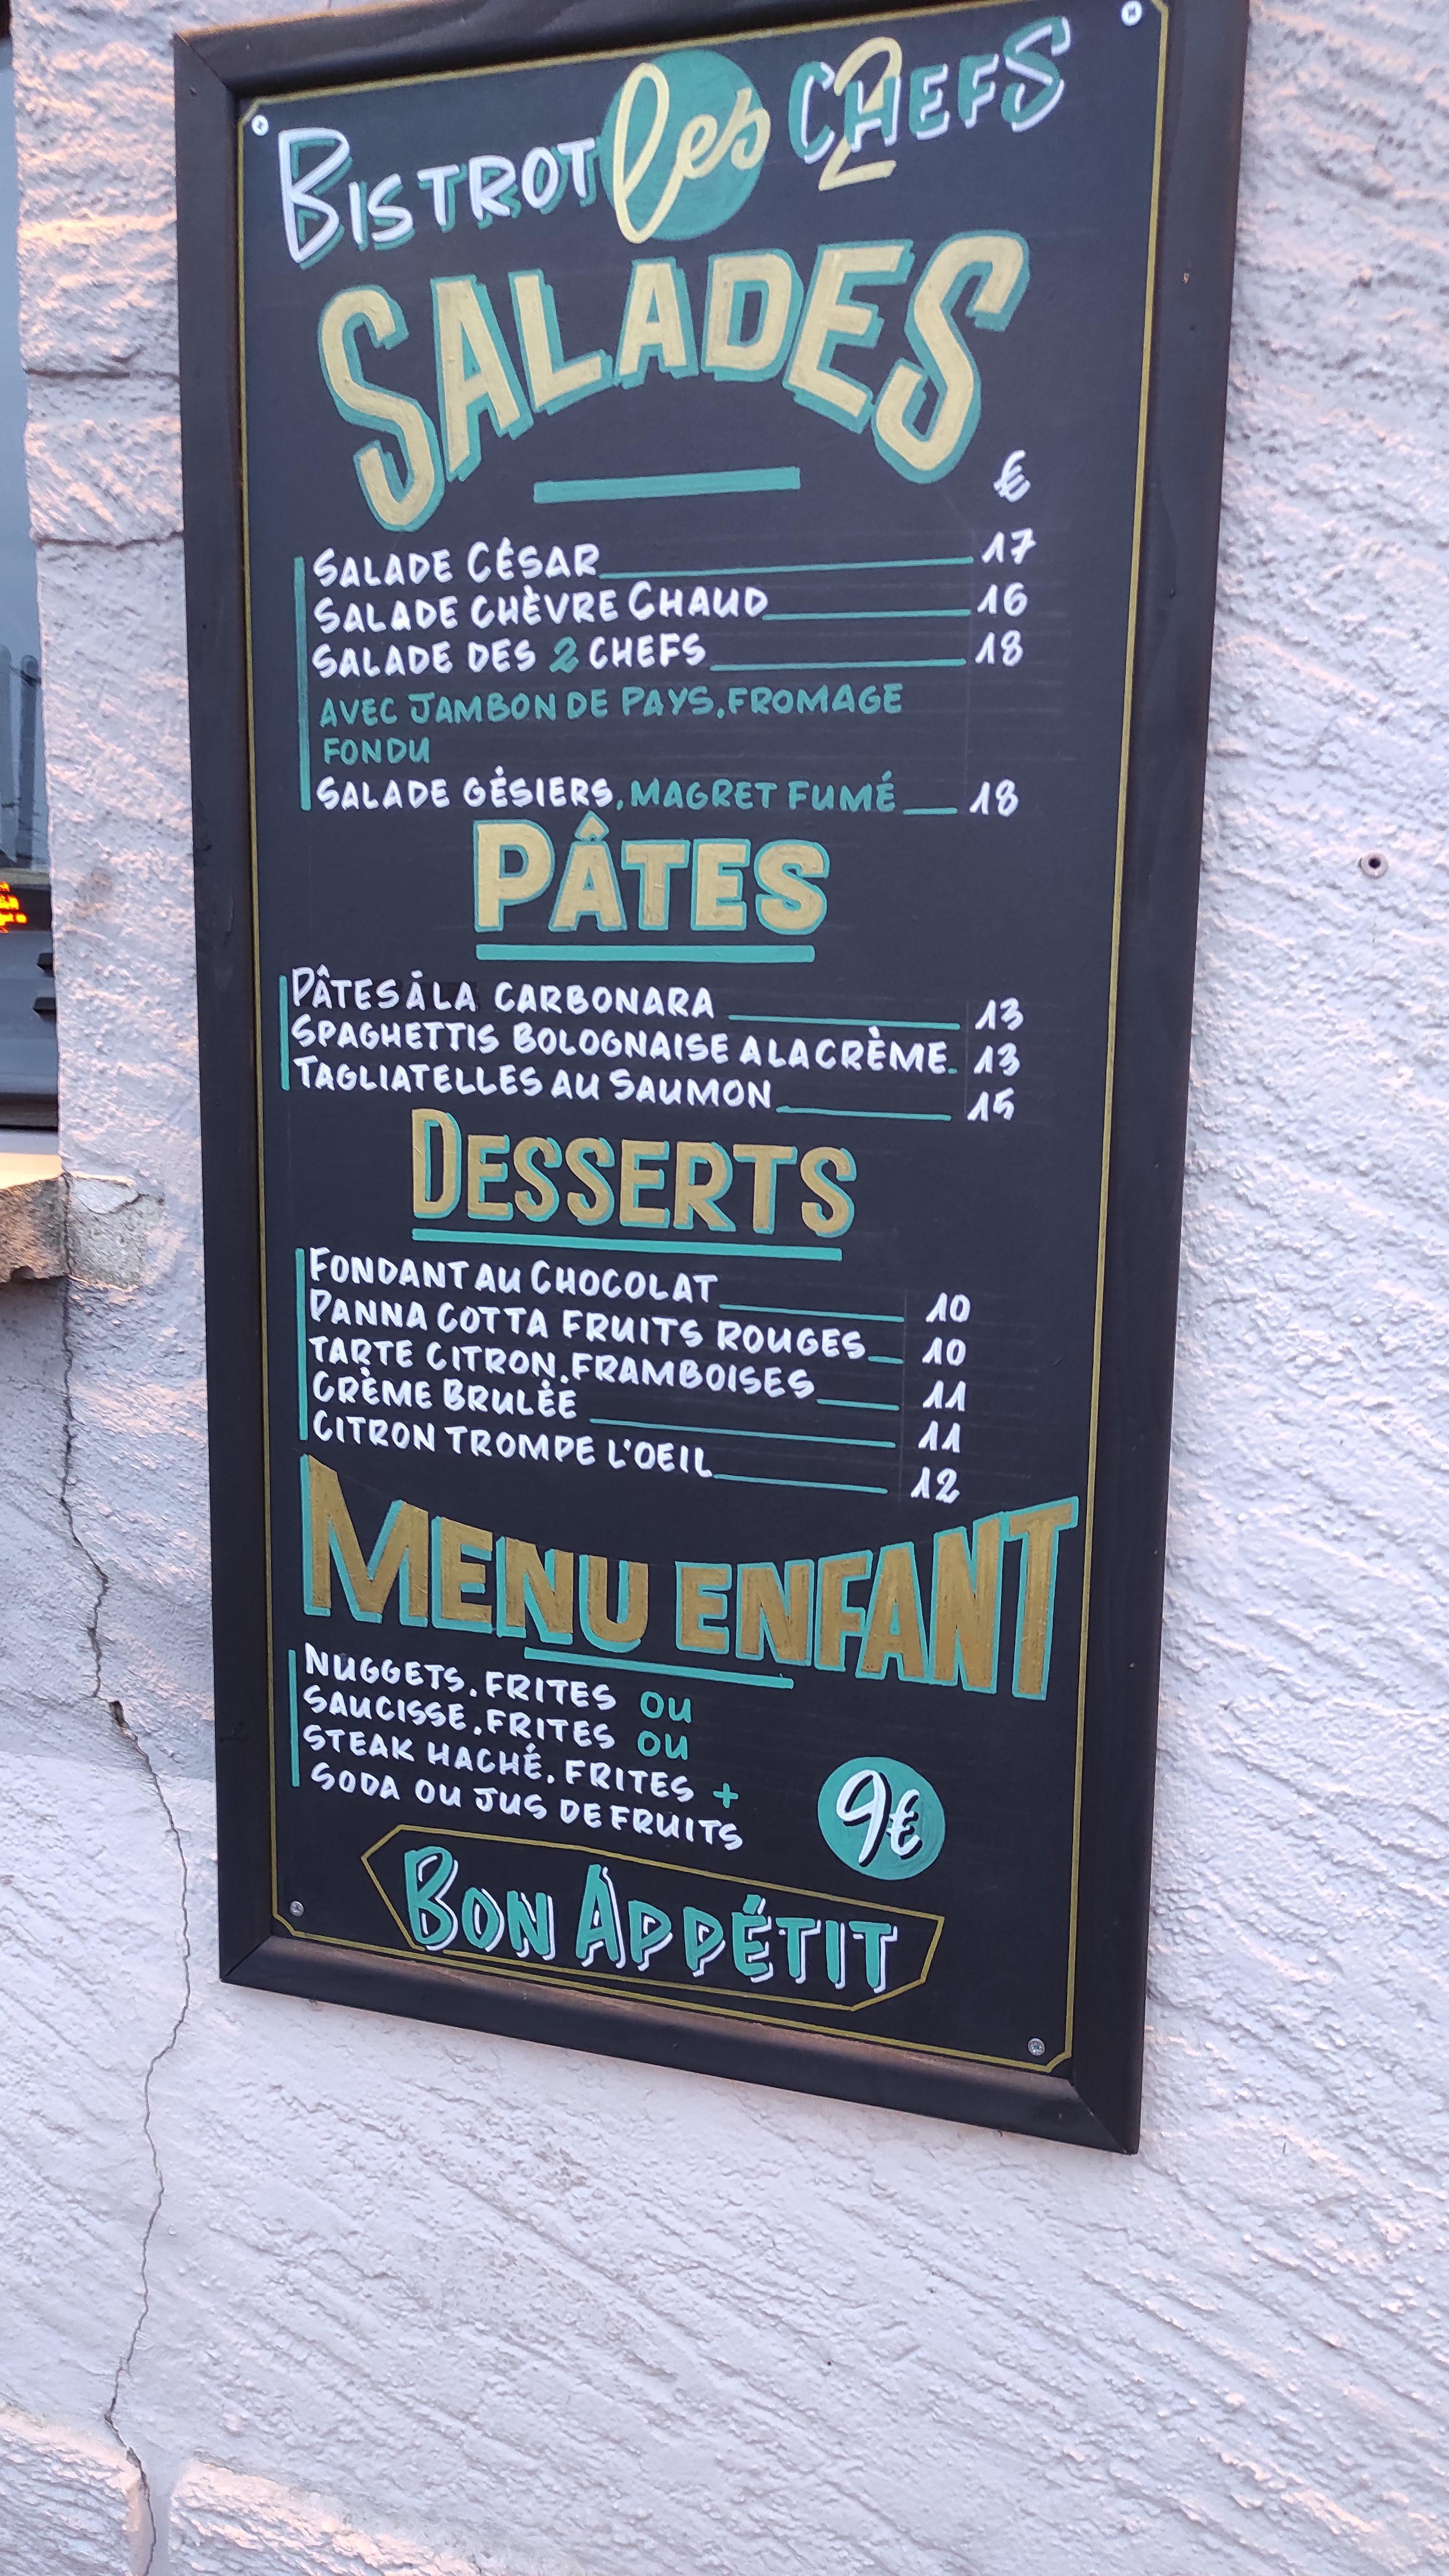 BISTROT les 2 CHEFS
SALADES
€
SALADE CÉSAR 17
SALADE CHÈVRE CHAUD 16
SALADE DES 2 CHEFS 18
AVEC JAMBON DE PAYS, FROMAGE
FONDU
SALADE GÉSIERS, MAGRET FUMÉ 18
PÂTES
PÂTES À LA CARBONARA 13
SPAGHETTIS BOLOGNAISE A LA CRÈME 13
TAGLIATELLES AU SAUMON 15
DESSERTS
FONDANT AU CHOCOLAT 10
PANNA COTTA FRUITS ROUGES 10
TARTE CITRON, FRAMBOISES 11
CRÈME BRULÉE 11
CITRON TROMPE L'OEIL 12
MENU ENFANT
NUGGETS, FRITES OU
SAUCISSE, FRITES OU
STEAK HACHÉ, FRITES +
SODA OU JUS DE FRUITS
9€
BON APPÉTIT